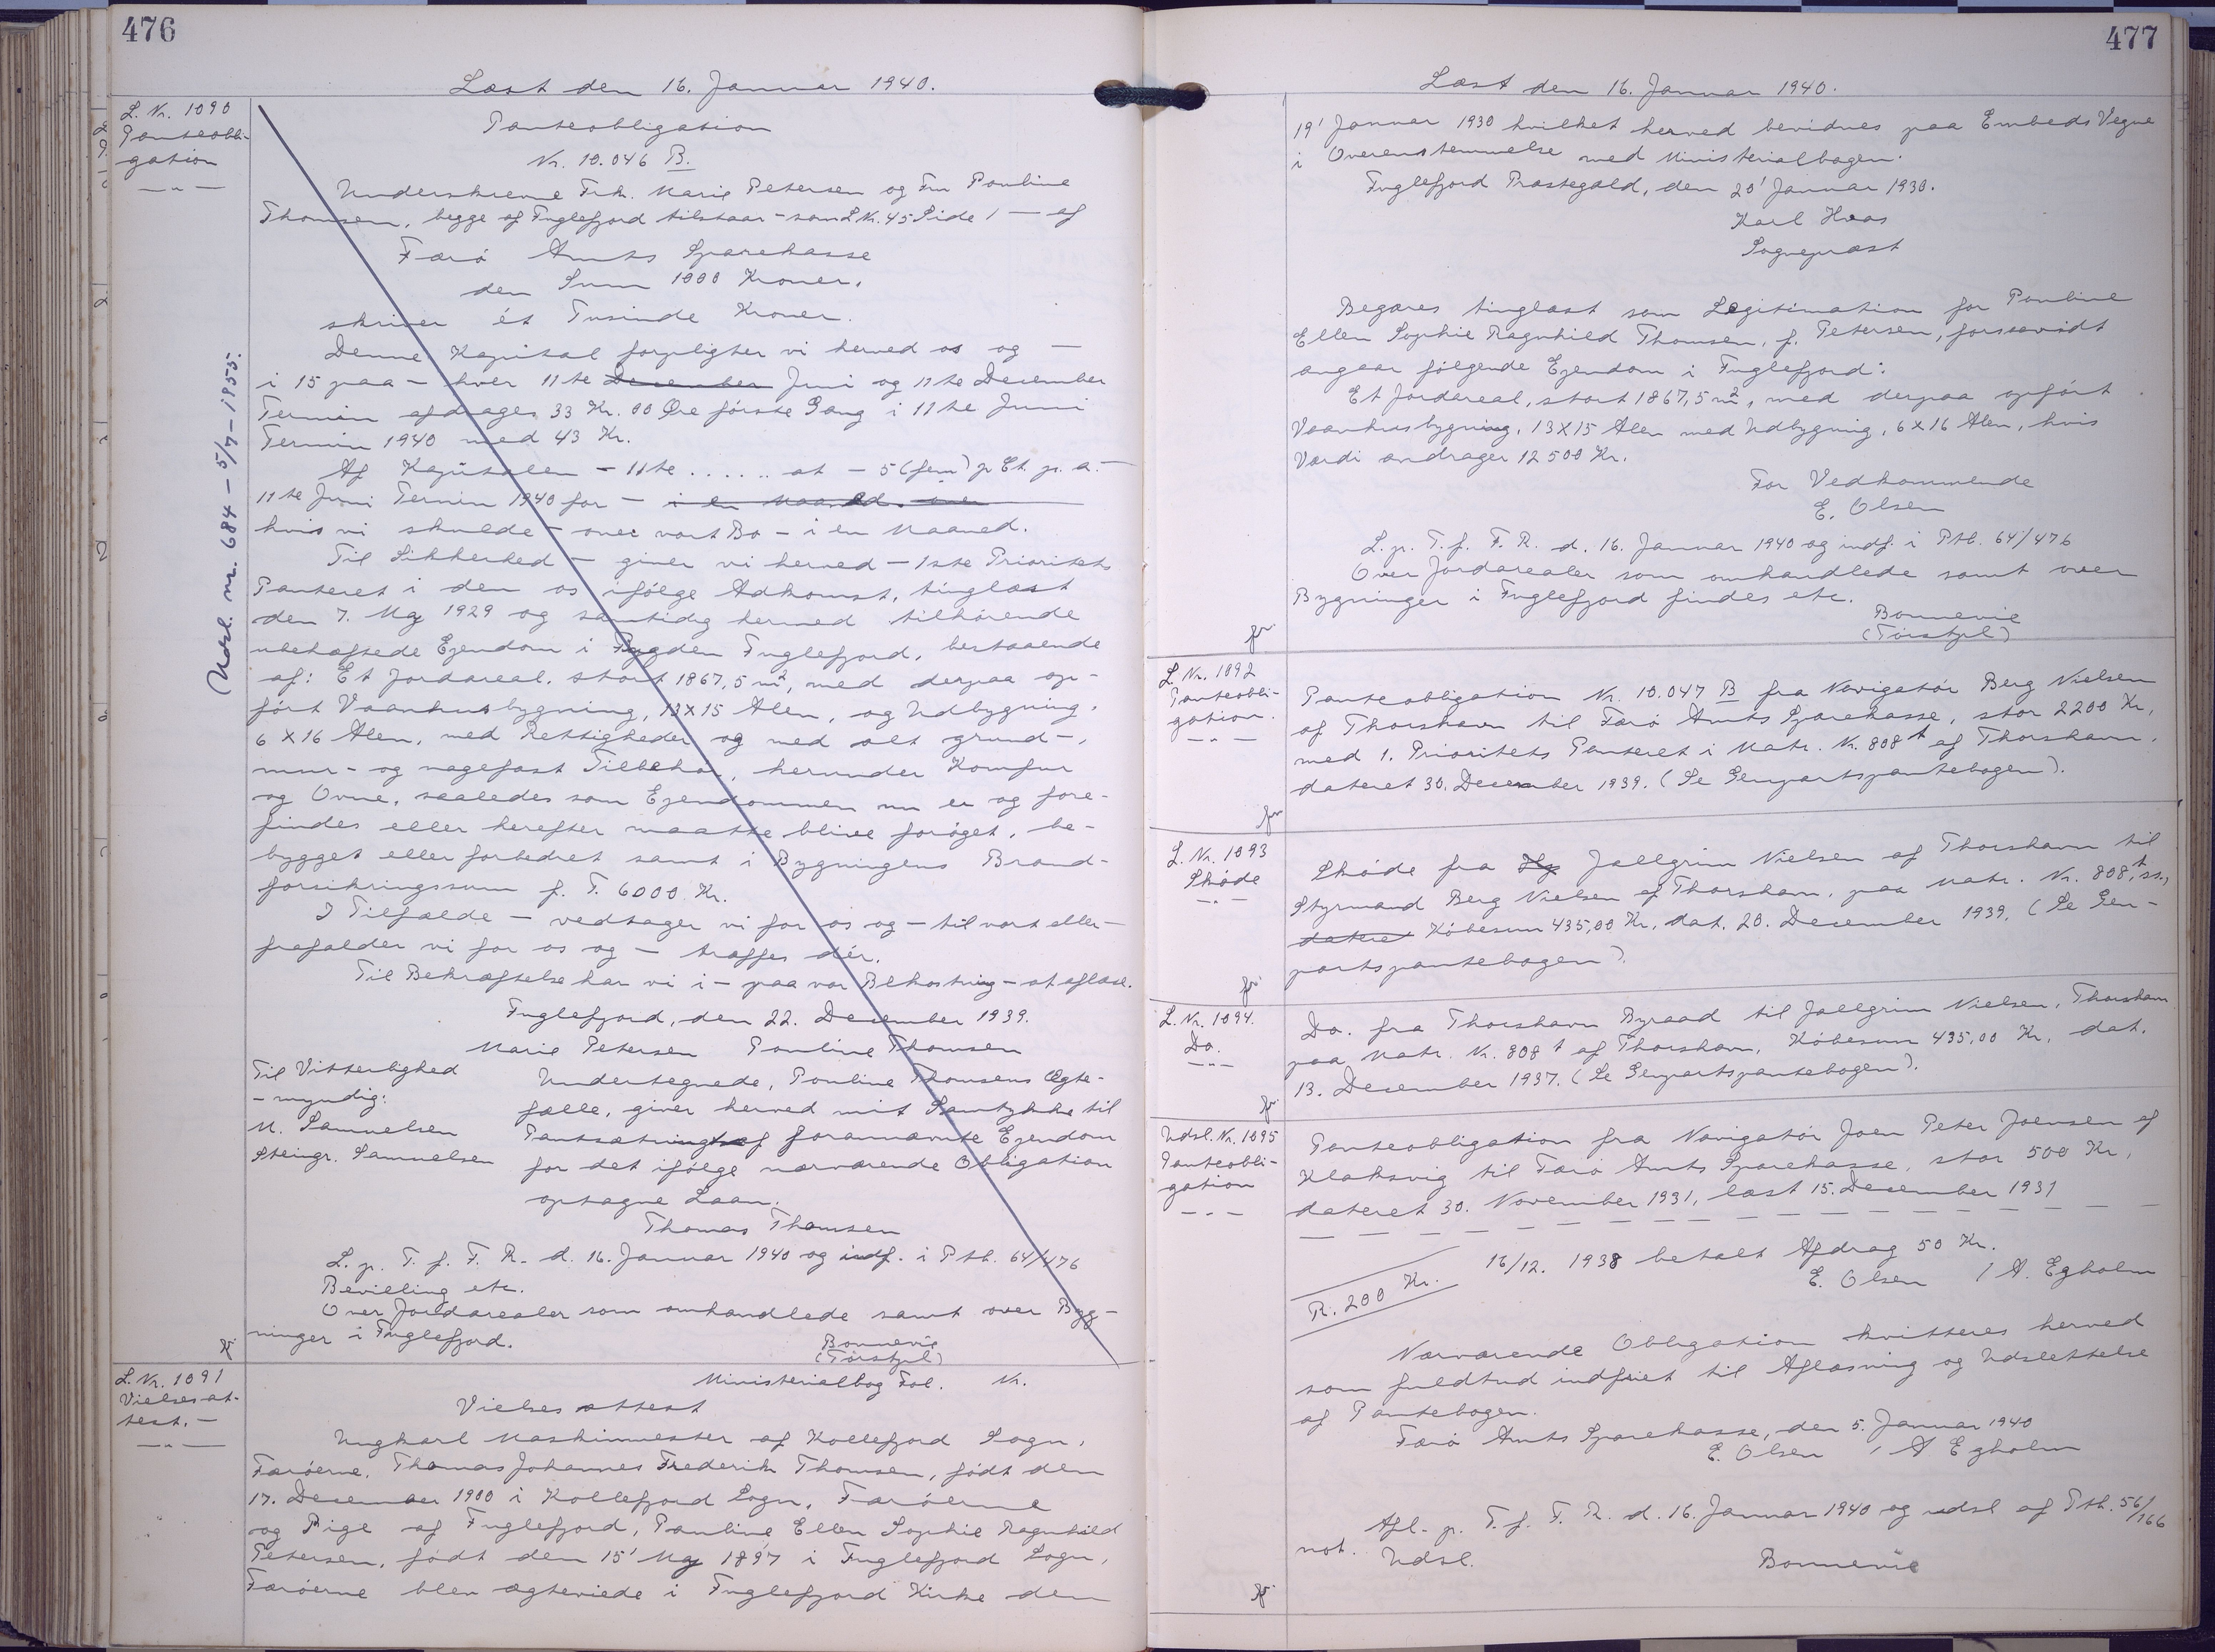 476
Læst den 16. Januar 1940.
L. Nr. 1090
Panteobli-
gation
Panteobligation
Nr. 10.046 B.
Underskrevne Frk. Marie Petersen og Fru Pauline
Thomsen, begge af Fuglefjord tilstaar - som L.Nr. 45 Side 1 — af
Færø Amts Sparekasse
den Sum 1000 Kroner,
skriver ét Tusinde Kroner.
Denne Kapital forpligter vi herved os og —
i 15 paa - hver 11te December Juni og 11te December
Termin afdrages 33 Kr. 00 Øre første Gang i 11te Juni
Termin 1940 med 43 Kr.
Af Kapitalen - 11te ...... at - 5 (fem) p Ct. p. a. —
11te Juni Termin 1940 for — i en Maaned. over
hvis vi skulde - over vort Bo - i en Maaned.
Til Sikkerhed — giver vi herved — 1ste Prioritets
Panteret i den os ifølge Adkomst, tinglæst
den 7. Maj 1929 og samtidig hermed tilhørende
ubehæftede Ejendom i Bygden Fuglefjord, bestaaende
af: Et Jordareal, stort 1867,5 m², med derpaa op-
ført Vaanhusbygning, 13x15 Alen, og Udbygning,
6 x 16 Alen, med Rettigheder og med alt grund-,
mur- og nagefast Tilbehør, herunder Komfur
og Ovne, saaledes som Ejendommen nu er og fore-
findes eller herefter maatte blive forøget, be-
bygget eller forbedret samt i Bygningens Brand-
forsikringssum f. T. 6000 Kr.
I Tilfælde — vedtager vi for os og — til vort eller —
frafalder vi for os og — træffes dér.
Til Bekræftelse har vi i — paa vor Bekostning - at aflæse.
Fuglefjord, den 22. December 1939.
Marie Petersen Pauline Thomsen
Til Vitterlighed
- myndig:
M. Samuelsen
Steingr. Samuelsen
Undertegnede, Pauline Thomsens Ægte-
fælle, giver herved mit Samtykke til
Pantsætning af forannævnte Ejendom
for det ifølge nærværende Obligation
optagne Laan.
Thomas Thomsen
L. p. T. f. F. R. d. 16. Januar 1940 og indf. i Ptb. 64/476
Bevilling etc.
Over Jordarealer som omhandlede samt over Byg-
ninger i Fuglefjord.
Bonnevie
(Tørstpl)
Udsl. nr. 684 - 5/7 - 1955.
L. Nr. 1091
Vielsesat-
test. —
Ministerialbog Fol. Nr.
Vielsesattest
Ungkarl Maskinmester af Kollefjord Sogn,
Færøerne, Thomas Johannes Frederik Thomsen, født den
17. December 1900 i Kollefjord Sogn, Færøerne
og Pige af Fuglefjord, Pauline Ellen Sophie Ragnhild
Petersen, født den 15' Maj 1897 i Fuglefjord Sogn,
Færøerne blev ægteviede i Fuglefjord Kirke den
477
Læst den 16. Januar 1940.
19' Januar 1930 hvilket herved bevidnes paa Embeds Vegne
i Overenstemmelse med Ministerialbogen.
Fuglefjord Præstegæld, den 20' Januar 1930.
Karl Hvas
Sognepræst
Begæres tinglæst som Legitimation for Pauline
Ellen Sophie Ragnhild Thomsen, f. Petersen, forsaavidt
angaar følgende Ejendom i Fuglefjord:
Et Jordareal, stort 1867,5 m², med derpaa opført
Vaanhusbygning, 13x15 Alen med Udbygning, 6x16 Alen, hvis
Værdi andrager 12500 Kr.
For Vedkommende
E. Olsen
L. p. T. f. F. R. d. 16. Januar 1940 og indf. i Ptb. 64/476
Over Jordarealer som omhandlede samt over
Bygninger i Fuglefjord findes etc.
Bonnevie
(Tørstpl)
L. Nr. 1092
Panteobli-
gation.
Panteobligation Nr. 10.047 B fra Navigatør Berg Nielsen
af Thorshavn til Færø Amts Sparekasse, stor 2200 Kr,
med 1. Prioritets Panteret i Matr. Nr. 808 t af Thorshavn,
dateret 30. December 1939. (Se Genpartspantebogen).
L. Nr. 1093
Skøde
Skøde fra Jallgrim Nielsen af Thorshavn til
Styrmand Berg Nielsen af Thorshavn, paa Matr. Nr. 808 t, ss.,
dateret Købesum 435,00 Kr, dat. 20. December 1939. (Se Gen-
partspantebogen).
L. Nr. 1094.
Do.
Do. fra Thorshavn Byraad til Jallgrim Nielsen, Thorshavn
paa Matr. Nr. 808 t af Thorshavn, Købesum 435,00 Kr, dat.
13. December 1937. (Se Genpartspantebogen).
Udsl. Nr. 1095
Panteobli-
gation
Panteobligation fra Navigatør Joen Peter Joensen af
Klaksvig til Færø Amts Sparekasse, stor 500 Kr,
dateret 30. November 1931, læst 15. December 1931
R. 200 Kr.
16/12. 1938 betalt Afdrag 50 Kr.
E. Olsen / A. Egholm
Nærværende Obligation kvitteres herved
som fuldtud indfriet til Aflæsning og Udslettelse
af Pantebogen.
Færø Amts Sparekasse, den 5. Januar 1940
E. Olsen / A Egholm
Afl. p. T. f. F. R. d. 16. Januar 1940 og udsl af Ptb. 56/166
not. Udsl.
Bonnevie